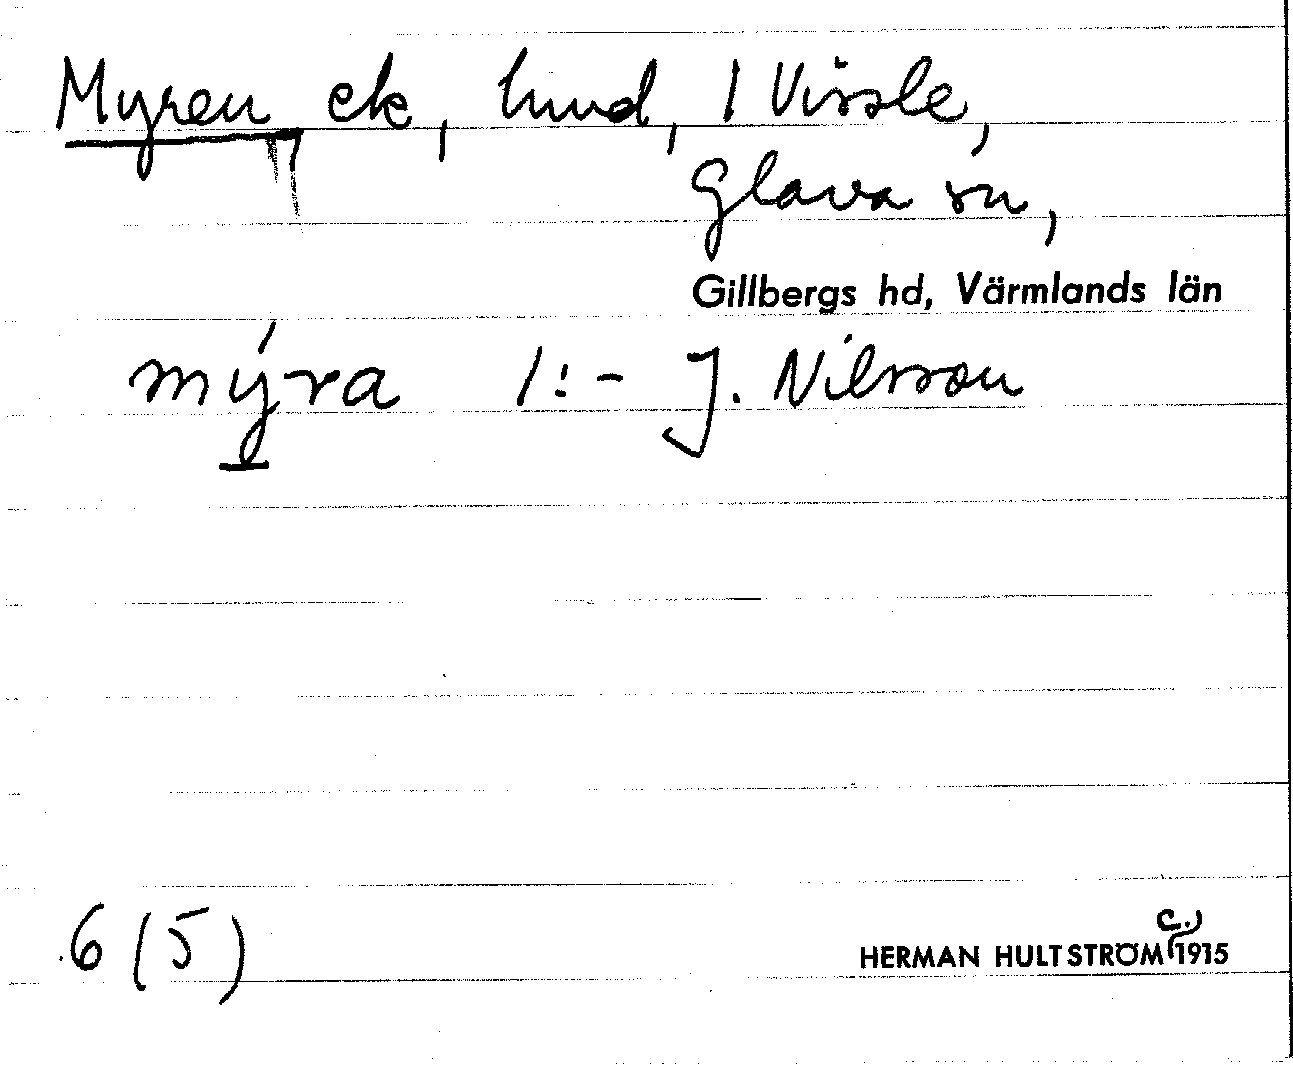 Myren, ek, hmd, 1 Vissle,
Glava sn,
Gillbergs hd, Värmlands län
mýra 1:- J. Nilsson
6 (5)
c.)
HERMAN HULTSTRÖM 1915